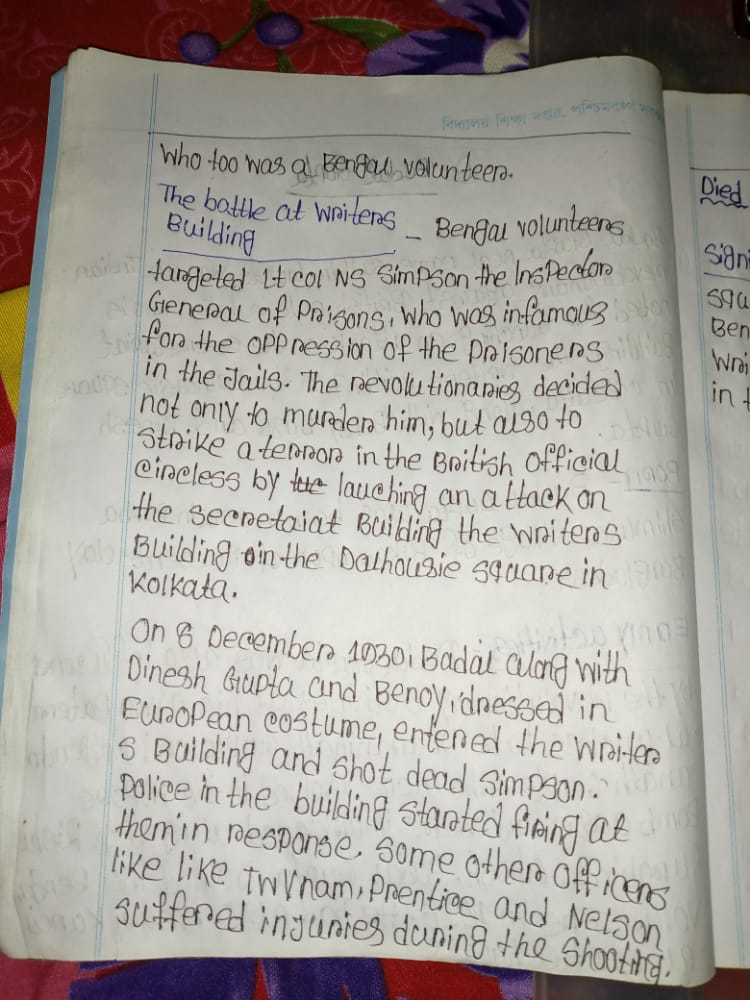 বিদ্যালয় শিক্ষা দপ্তর, পশ্চিমবঙ্গ
Who too was a Bengal volunteer.
The battle at Writers
Building
– Bengal volunteers
targeted Lt col NS Simpson the Inspector
General of Prisons, who was infamous
for the oppression of the prisoners
in the Jails. The revolutionaries decided
not only to murder him, but also to
strike a terror in the British official
circless by lauching an attack on
the secretaiat Building the writers
Building in the Dalhousie square in
Kolkata.
On 8 December 1930, Badal along with
Dinesh Gupta and Benoy, dressed in
European costume, entered the writer
s Building and shot dead Simpson.
Police in the building started firing at
them in response. Some other officers
like like Twynam, Prentice and Nelson
suffered injuries during the shooting.
Died
Signi
squ
Ben
Wri
in t